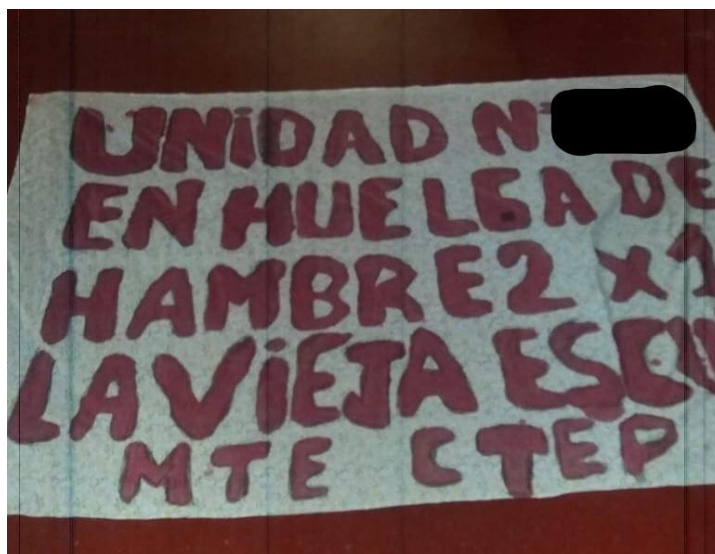 UNiDAD Nº
EN HUELGA DE
HAMBRE 2 x 1
LA VIEJA ESCU
MTE CTEP